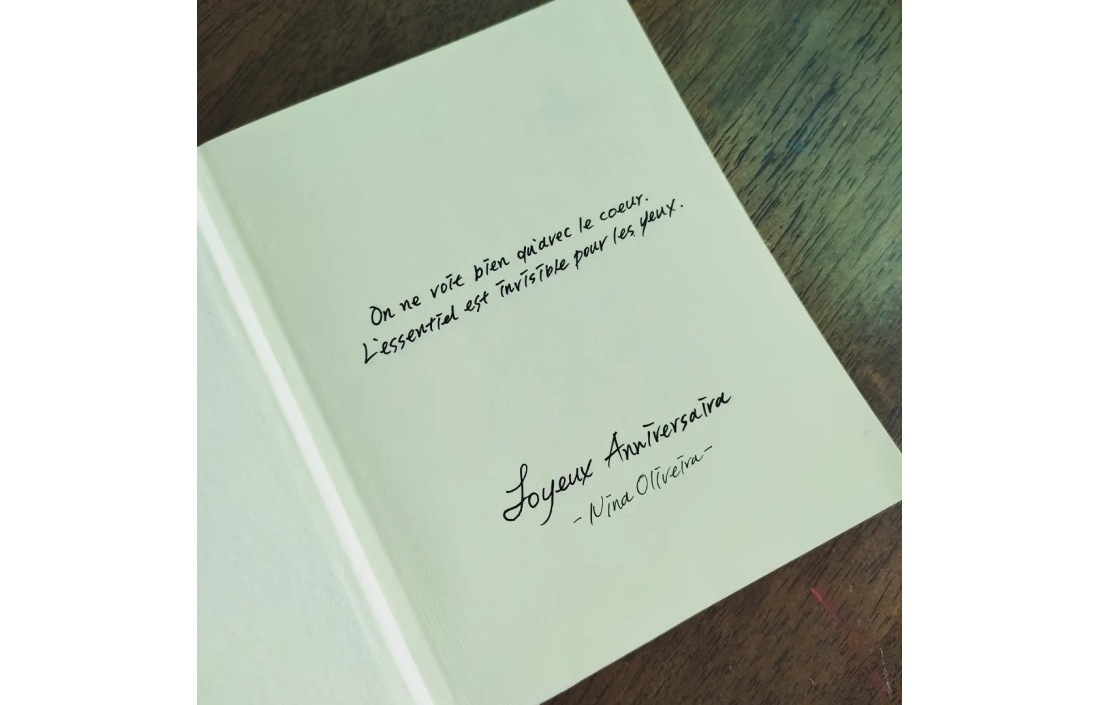 On ne voit bien qu'avec le coeur.
L'essentiel est invisible pour les yeux.
Joyeux Anniversaire
- Nina Oliveira -